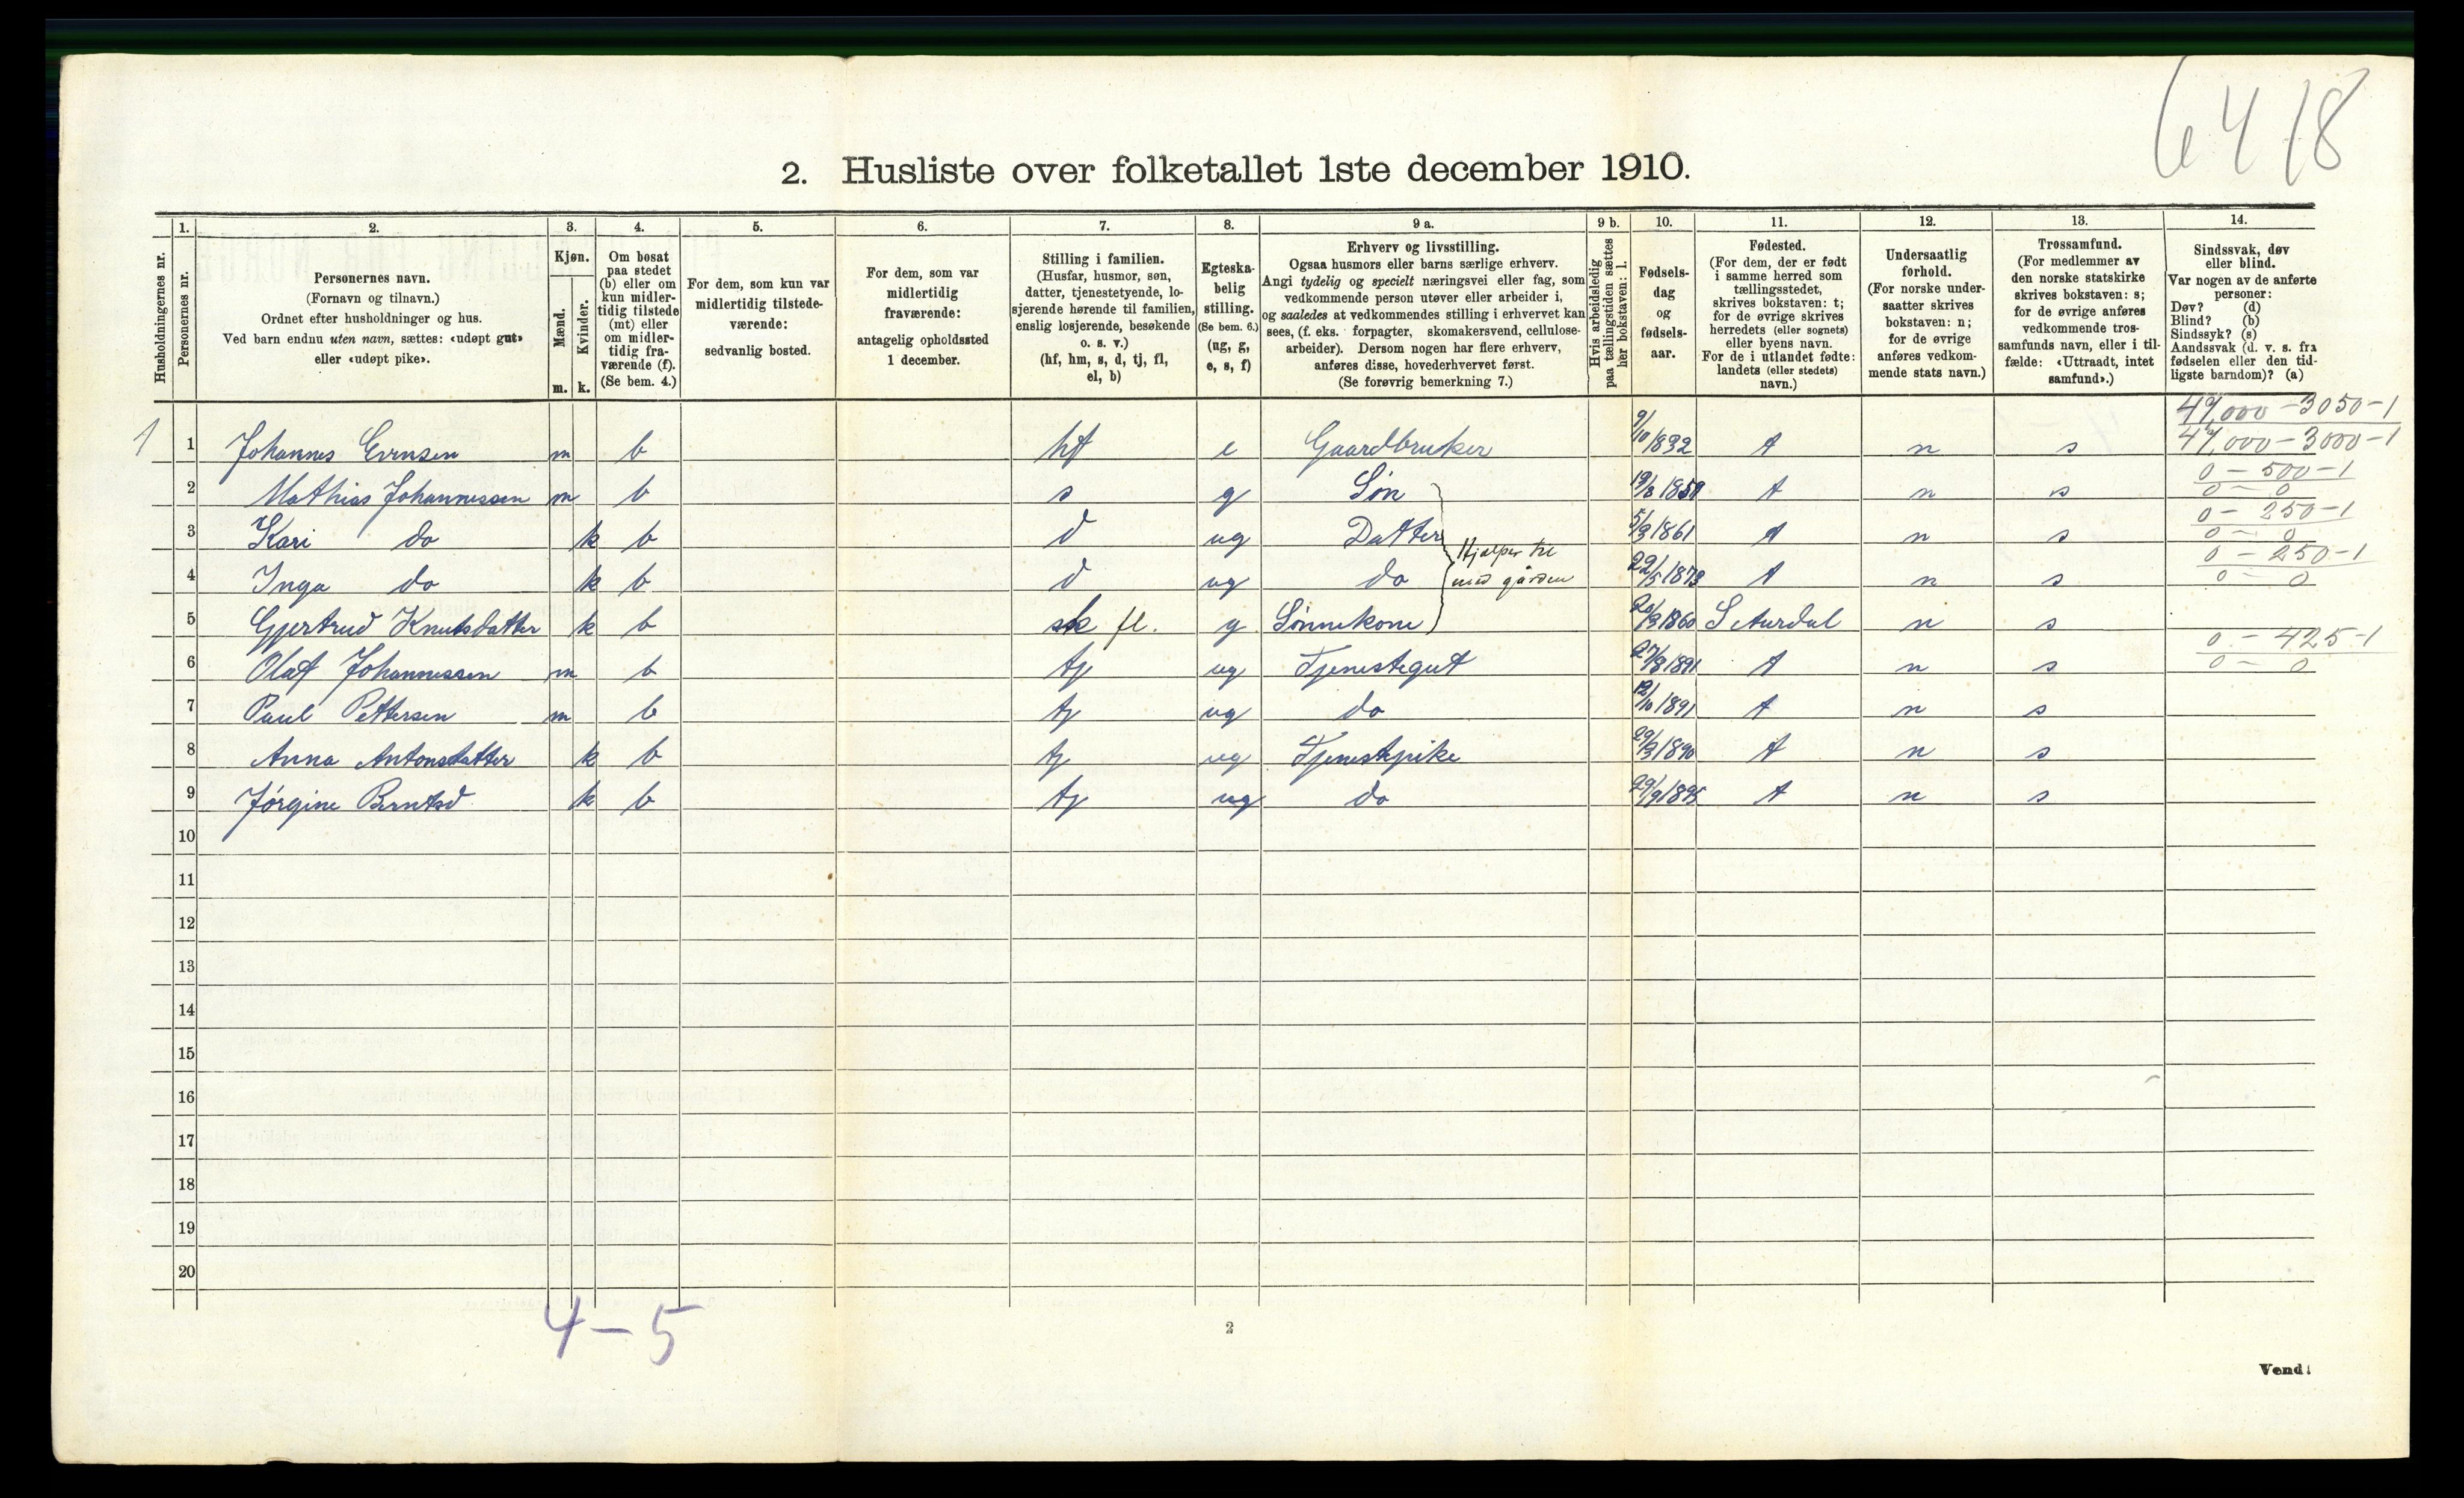 6418
2. Husliste over folketallet 1ste december 1910.
Husholdningernes nr.
1.
Personernes nr.
2.
Personernes navn.
(Fornavn og tilnavn.)
Ordnet efter husholdninger og hus.
Ved barn endnu uten navn, sættes: «udøpt gut»
eller «udøpt pike».
3.
Kjøn.
Mænd.
Kvinder.
m. k.
4.
Om bosat
paa stedet
(b) eller om
kun midler-
tidig tilstede
(mt) eller
om midler-
tidig fra-
værende (f).
(Se bem. 4.)
5.
For dem, som kun var
midlertidig tilstede-
værende:
sedvanlig bosted.
6.
For dem, som var
midlertidig
fraværende:
antagelig opholdssted
1 december.
7.
Stilling i familien.
(Husfar, husmor, søn,
datter, tjenestetyende, lo-
sjerende hørende til familien,
enslig losjerende, besøkende
o. s. v.)
(hf, hm, s, d, tj, fl,
el, b)
8.
Egteska-
belig
stilling.
(Se bem. 6.)
(ug, g,
e, s, f)
9 a.
Erhverv og livsstilling.
Ogsaa husmors eller barns særlige erhverv.
Angi tydelig og specielt næringsvei eller fag, som
vedkommende person utøver eller arbeider i,
og saaledes at vedkommendes stilling i erhvervet kan
sees, (f. eks. forpagter, skomakersvend, cellulose-
arbeider). Dersom nogen har flere erhverv,
anføres disse, hovederhvervet først.
(Se forøvrig bemerkning 7.)
9 b.
Hvis arbeidsledig
paa tællingstiden sættes
her bokstaven: l.
10.
Fødsels-
dag
og
fødsels-
aar.
11.
Fødested.
(For dem, der er født
i samme herred som
tællingsstedet,
skrives bokstaven: t;
for de øvrige skrives
herredets (eller sognets)
eller byens navn.
For de i utlandet fødte:
landets (eller stedets)
navn.)
12.
Undersaatlig
forhold.
(For norske under-
saatter skrives
bokstaven: n;
for de øvrige
anføres vedkom-
mende stats navn.)
13.
Trossamfund.
(For medlemmer av
den norske statskirke
skrives bokstaven: s;
for de øvrige anføres
vedkommende tros-
samfunds navn, eller i til-
fælde: «Uttraadt, intet
samfund».)
14.
Sindssvak, døv
eller blind.
Var nogen av de anførte
personer:
Døv? (d)
Blind? (b)
Sindssyk? (s)
Aandssvak (d. v. s. fra
fødselen eller den tid-
ligste barndom)? (a)
47,000 - 3050 - 1
1 1 Johannes Evensen m b hf e Gaardbruker 9/10 1832 t n s 47,000 - 3000 - 1
0 - 500 - 1
2 Mathias Johannessen m b s g Søn 19/3 1859 t n s 0 - 0
0 - 250 - 1
3 Kari do k b d ug Datter 5/3 1861 t n s 0 - 0
Hjælper til
0 - 250 - 1
4 Inga do k b d ug do med gården 22/5 1873 t n s 0 - 0
5 Gjertrud Knutsdatter k b fl. g Sønnekone 20/3 1860 S Aurdal n s
0 - 425 - 1
6 Olaf Johannessen m b tj ug Tjenestegut 27/8 1891 t n s 0 - 0
7 Paul Pettersen m b tj ug do 12/10 1891 t n s
8 Anna Antonsdatter k b tj ug Tjenestepike 29/3 1890 t n s
9 Jørgine Berntsd k b tj ug do 29/9 1895 t n s
10
11
12
13
14
15
16
17
18
19
20
4 - 5
2
Vend!